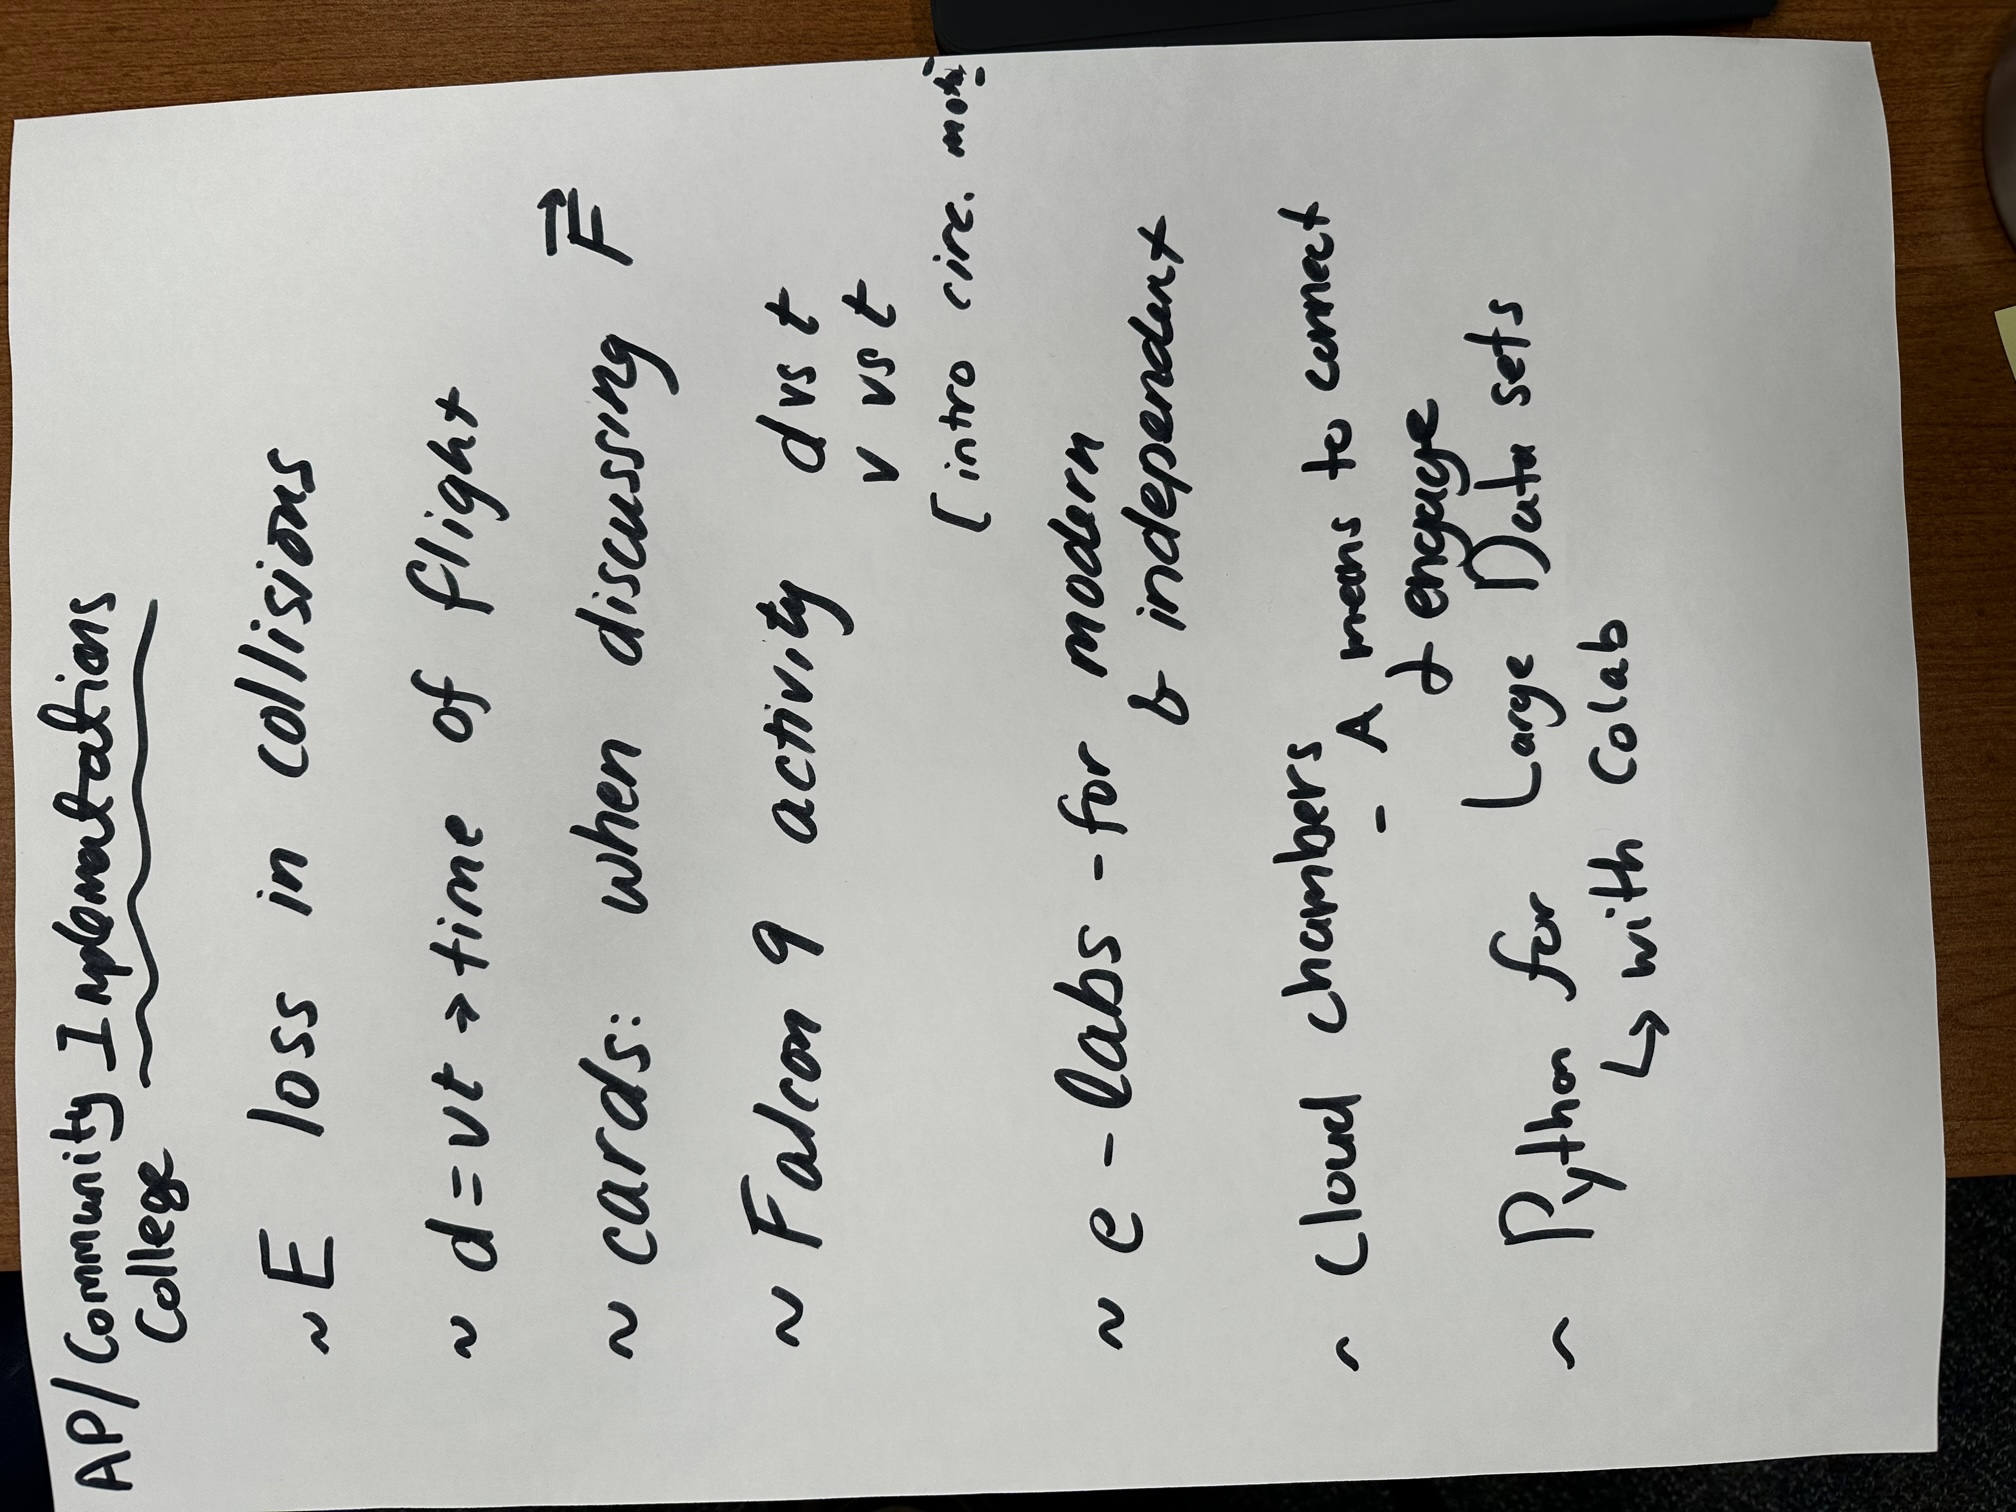 AP/Community Implementations
College
~ E loss in collisions
~ d=vt → time of flight
~ cards: when discussing F⃗
~ Falcon 9 activity d vs t
v vs t
[intro circ. motion
~ e-labs - for modern
& independent
~ cloud chambers
- A means to connect
& engage
~ Python for Large Data sets
↳ with colab